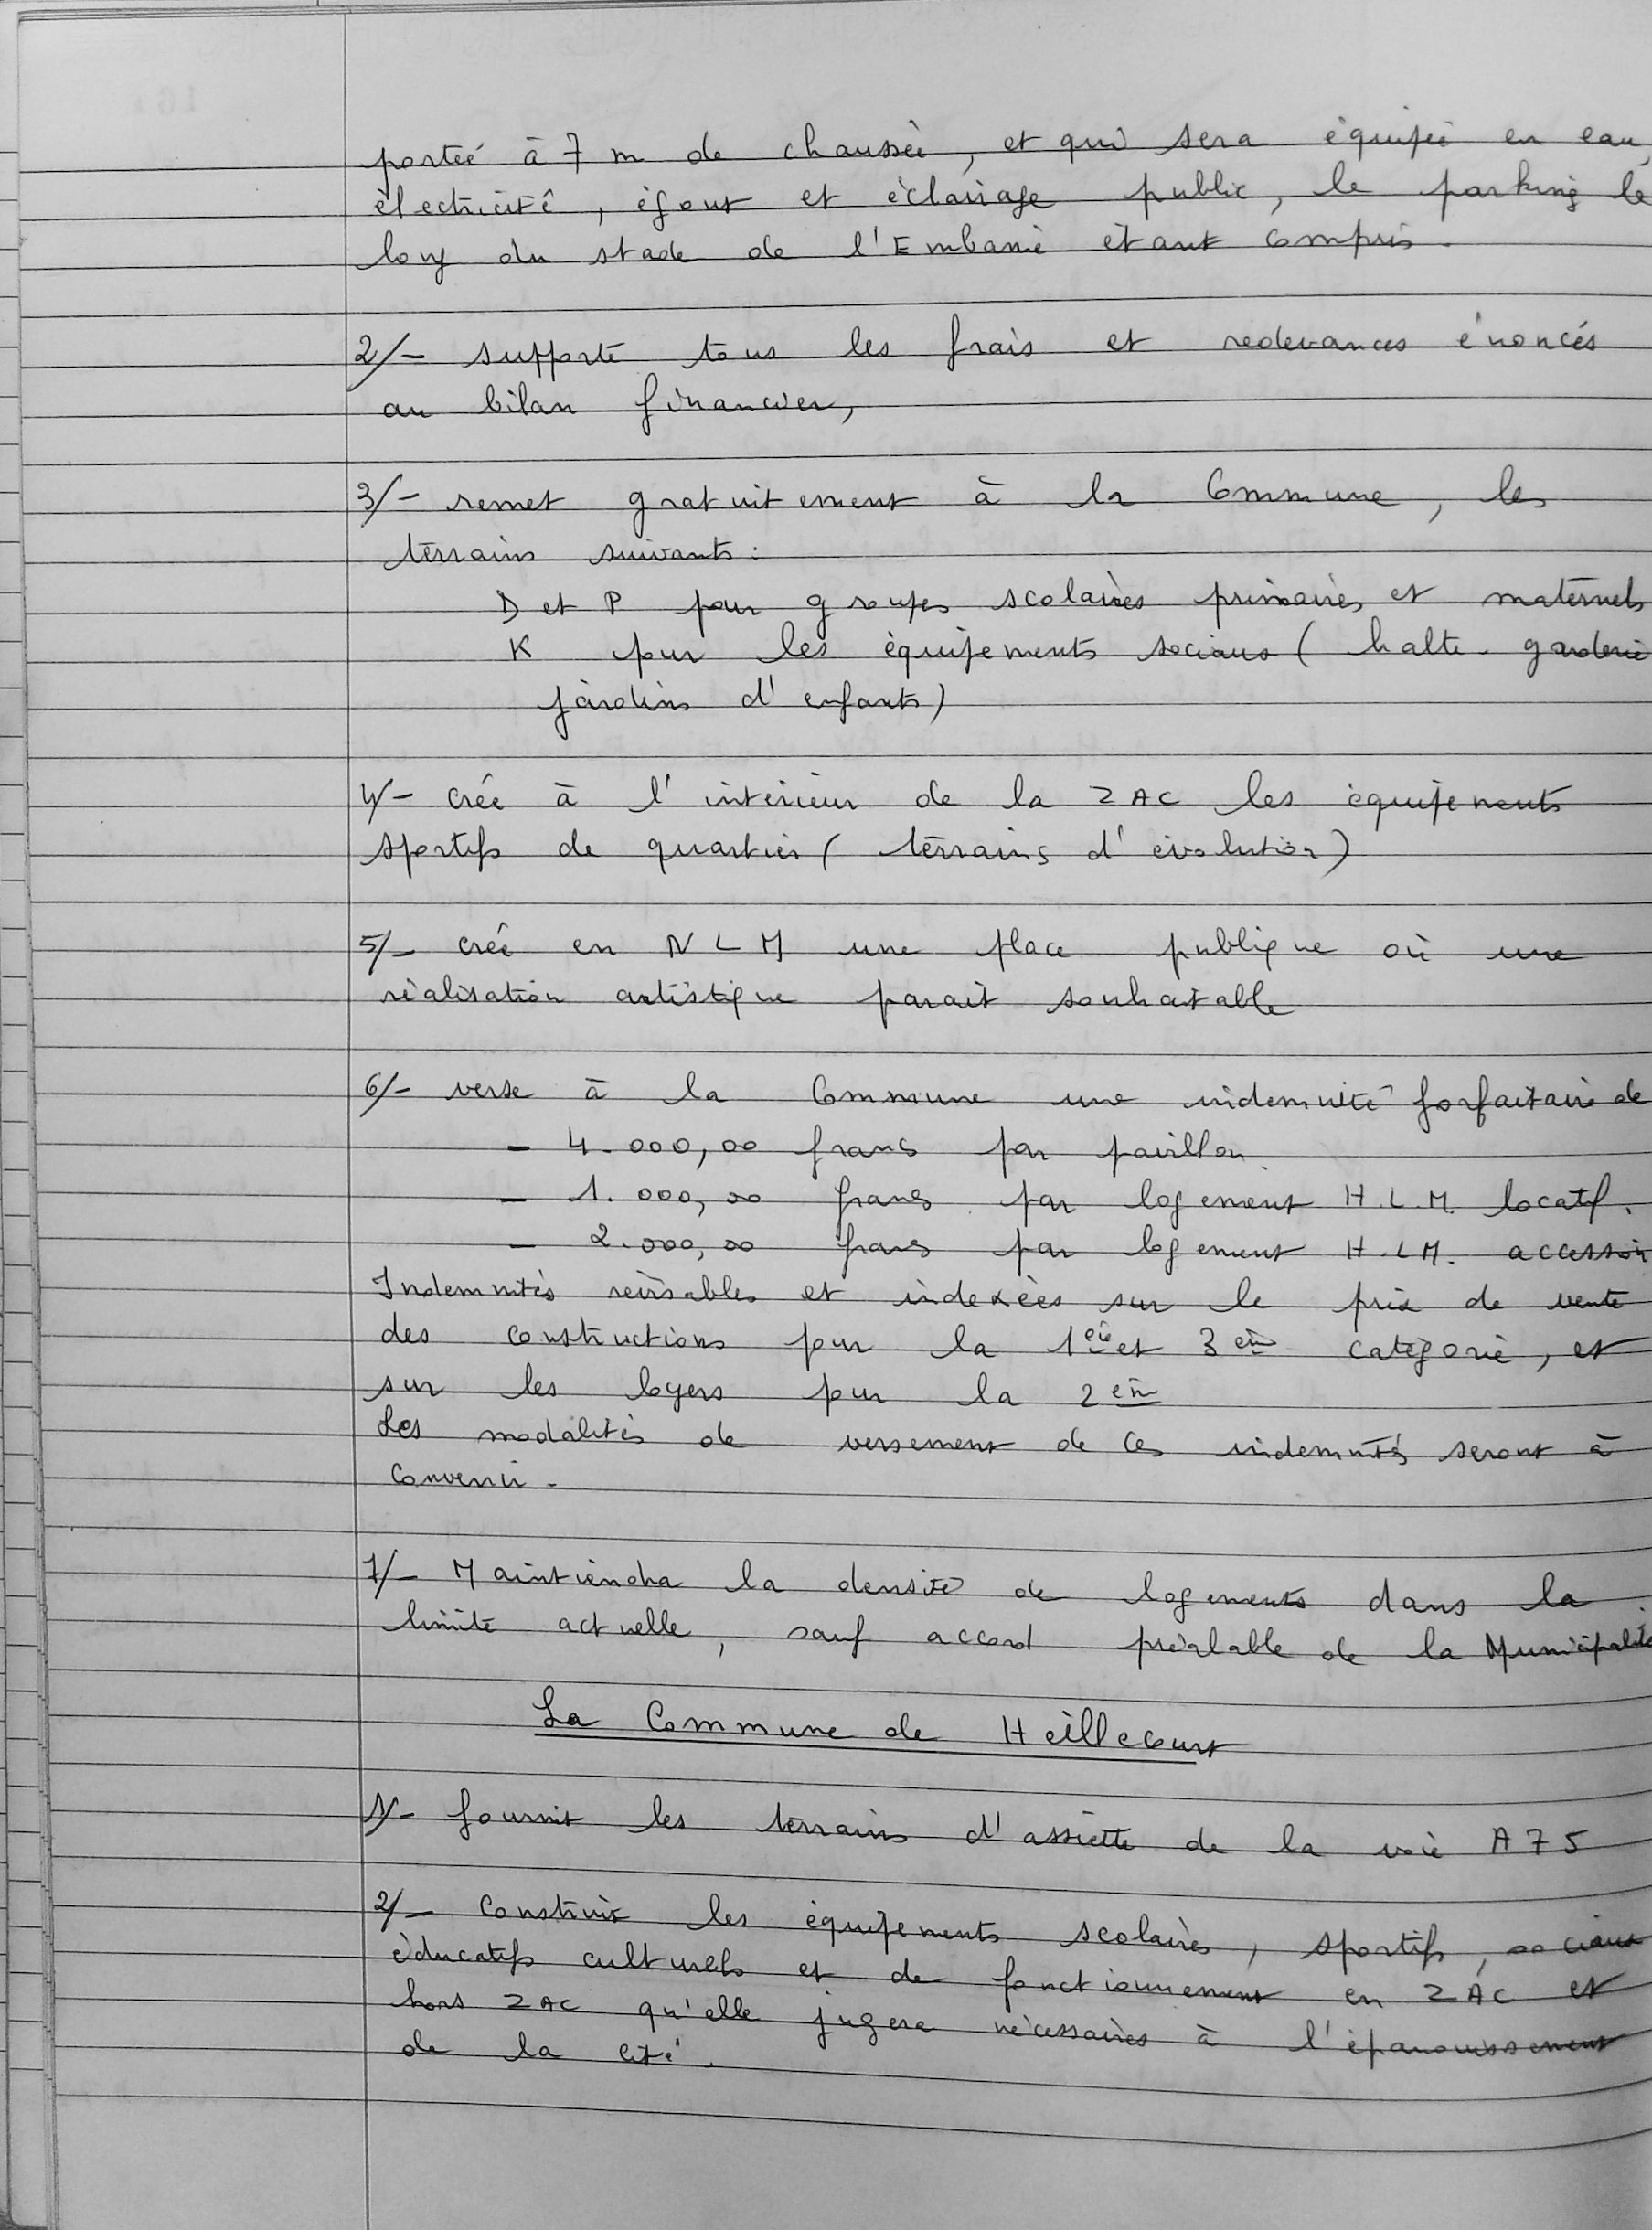 portée à 7 m de chaussée, et qui sera équipée en eau,
électricité, égout et éclairage public, le parking le
long du stade de l'Embanie étant compris.
2/- supporte tous les frais et redevances énoncés
au bilan financier,
3/- remet gratuitement à la Commune, les
terrains suivants :
D et P pour groupes scolaires primaires et maternels
K pour les équipements sociaux ( halte-garderie
jardins d'enfants)
4/- crée à l'intérieur de la ZAC les équipements
sportifs de quartier ( terrains d'évolution)
5/- crée en NLM une place publique où une
réalisation artistique parait souhaitable
6/- verse à la Commune une indemnité forfaitaire de
- 4.000,00 francs par pavillon.
- 1.000,00 francs par logement H.L.M. locatif.
- 2.000,00 francs par logement H.L.M. accession
Indemnités révisables et indexées sur le prix de vente
des constructions pour la 1ère et 3ème catégorie, et
sur les loyers pour la 2ème
Les modalités de versement de ces indemnités seront à
convenir -
7/- Maintiendra la densité de logements dans la
limite actuelle, sauf accord préalable de la Municipalité
La Commune de Heillecourt
1/- fournit les terrains d'assiette de la voie A75
2/- Construit les équipements scolaires, sportifs, sociaux
éducatifs culturels et de fonctionnement en ZAC et
hors ZAC qu'elle jugera nécessaires à l'épanouissement
de la cité.